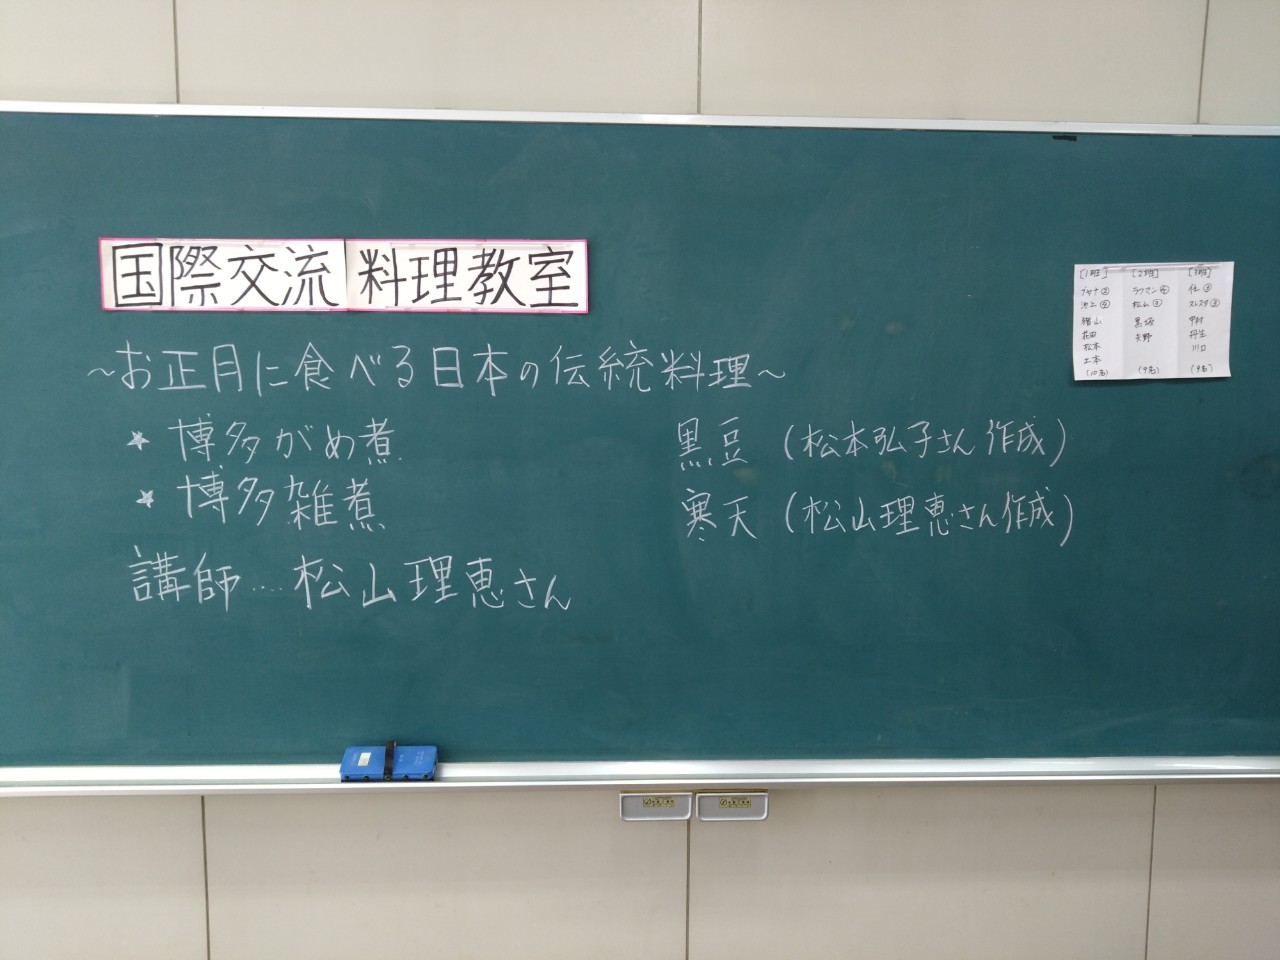 国際交流 料理教室
～お正月に食べる日本の伝統料理～
★ 博多がめ煮
★ 博多雑煮
講師....松山理恵さん
黒豆 (松本弘子さん作成)
寒天 (松山理恵さん作成)
[1班] [2班] [3班]
池上④ 松山②
黒坂 中村
花田 矢野 丹生
松本 川口
土本
(10名) (9名) (9名)